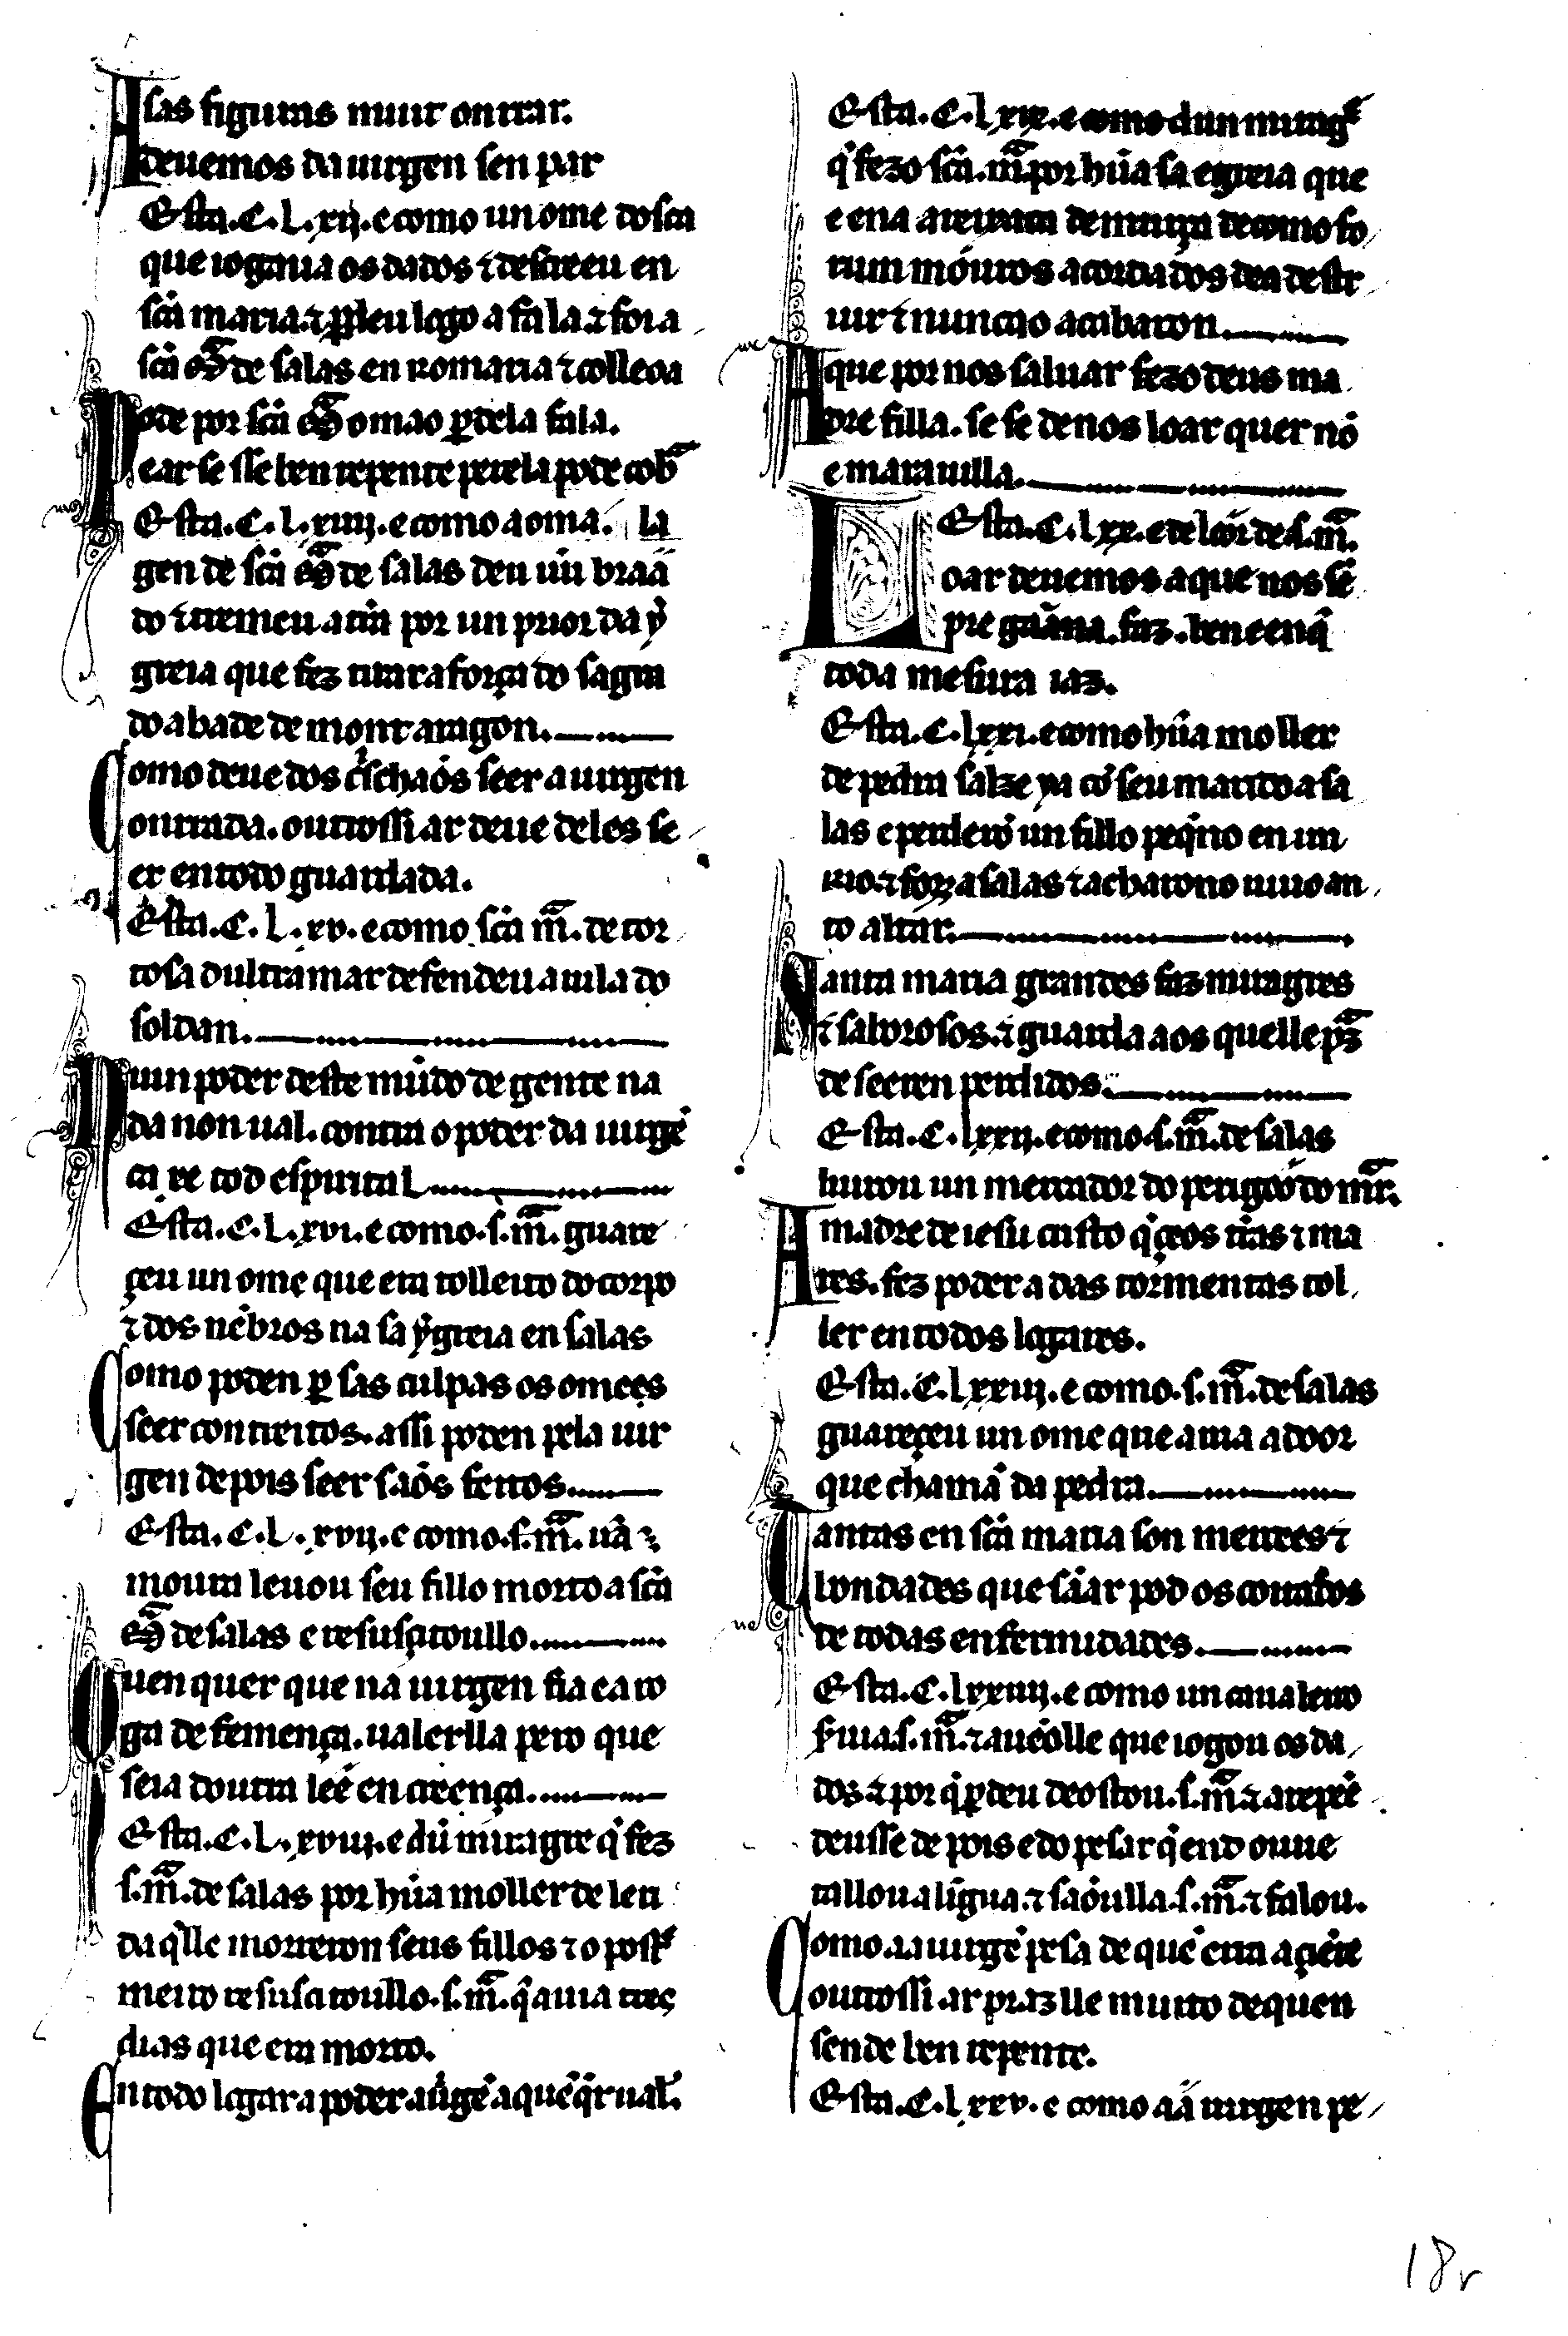 A sas figuras muit onrrar.
deuemos da uirgen sen par
Esta .C.L.xiij. e como un ome dosca
que iogaua os dados ⁊ descreeu en
scã maria. ⁊ ꝑdeu logo a fala ⁊ foi a
scã Mã de salas en romaria ⁊ colleoa
Pode por scã Mã o mao ꝑdela fala.
ear se sse ben repente per ela pode cobrã
Esta .C.L.xiiij. e como a oma. la
gen de scã Mã de salas deu ũu braã
do ⁊ tremeu a tr̃ra por un prior da ỹ
greia que fez tirar a força do sagra
do abade de mont aragon.
Como deue dos cr̃schaõs seer a uirgen
onrrada. outrossi ar deue deles se
er en todo guardada.
Esta .C.L.xv. e como scã m̃. de tor
tosa d ultramar defendeu a uila do
soldan.
Niun poder deste mũdo de gente na
da non ual. contra o poder da uirgẽ
ca xe tod espirital
Esta .C.L.xvi. e como .s.m̃. guare
çeu un ome que era tolleito do corpo
⁊ dos nẽbros na sa ỹgreia en salas
Como poden ꝑ sas culpas os omẽes
seer contreitos. assi poden pela uir
gen depois seer saõs feitos.
Esta .C.L.xvij. e como .s.m̃. ũa
moura leuou seu fillo morto a scã
Mã de salas e resusçitoullo.
Quen quer que na uirgen fia e a ro
ga de femença. ualerlla pero que
seia doutra leẽ en creença.
Esta .C.L.xviij. e dũ miragre q̃ fez
s.m̃. de salas por hũa moller de leri
da q̃lle morreron seus fillos ⁊ o post
meiro resuscitoullo .s.m̃. q̃ auia tres
dias que era morto.
En todo logar a poder. a ũgẽ a quẽ q̃r ual.
Esta .C.Lxix. e como dun mirag
q̃ fezo scã. m̃. por hũa sa egreia que
e ena arreixaca de murça de como fo
rum mouros acordados dea destr
uir ⁊ nunca o acabaron
A que por nos saluar fezo deus ma
dre filla. se se de nos loar quer nõ
e marauilla.
Esta .C.Lxx. e de loor de .s.m̃.
Loar deuemos a que nos sẽ
pre gaãna. faz. ben e en q̃
toda mesura iaz.
Esta .C.Lxxi. e como hũa moller
de pedra salze ya cõ seu marido a sa
las e perderõ un fillo peq̃no en un
rio. ⁊ forõ a salas ⁊ acharono uiuo an
to altar.
Santa maria grandes faz miragres
⁊ saborosos. ⁊ guarda aos quelle prã
de seeren perdidos.
Esta .C.Lxxij. e como .s.m̃. de salas
liurou un mercador do perigoo do mr̃.
A madre de iesu cristo q̃ çeos tr̃as ⁊ ma
res. fez poder a das tormentas tol
ler en todos logares.
Esta .C.Lxxiij. e como .s.m̃. de salas
guareçeu un ome que auia a door
que chamã da pedra.
Tantas en scã maria son merçees ⁊
bondades que sãar pod os coitados
de todas enfermidades.
Esta .C.Lxxiiij. e como un caualeiro
s̃uia .s.m̃. ⁊ aueolle que iogou os da
dos ⁊ por q̃ ꝑdeu deostou .s.m̃. ⁊ arepẽ
deusse depois e do pesar q̃ endo ouue
tallou a lĩgua. ⁊ saõulla .s.m̃. ⁊ falou.
Como aa uirgẽ pesa de quẽ erra a çiẽte
outrossi ar praz lle muito de quen
sende ben repente.
Esta .C.Lxxv. e como aã uirgen pe
18r